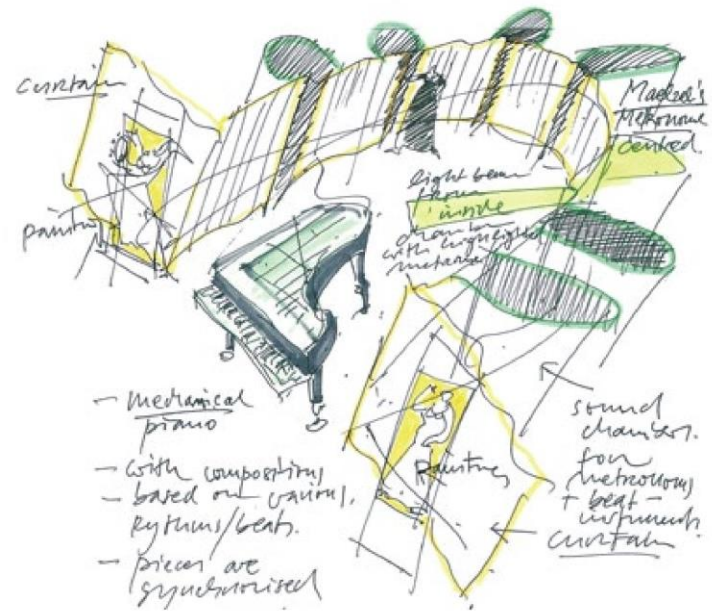 curtain
Maelzel's
Metronome
centred.
light beam
from
inside
chamber
with highlighted
painting
- mechanical
piano
- with compositions
- based on various.
Rythms/beats.
- pieces are
synchronised
Paintings
sound
chambers.
for
metronoms
+ beat -
instruments
curtain